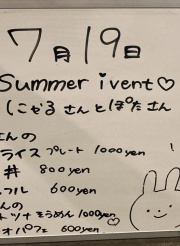 7月19日
Summer ivent♡
しこぜるさんとぽたさん
さんの
ライス プレート 1000yen
丼 800yen
フル 600yen
んの
トツナ そうめん 1000yen
オパフェ 600yen